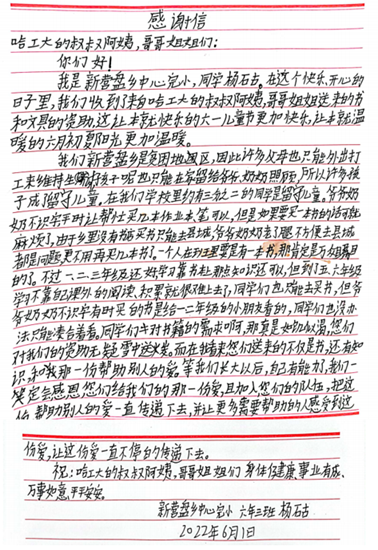 感谢信
哈工大的叔叔阿姨，哥哥姐姐们：
你们好！
我是新营盘乡中心完小，同学杨石古。在这个快乐、开心的
日子里，我们收到了来自哈工大的叔叔阿姨，哥哥姐姐送来的书
和文具的资助，这让本就快乐的六一儿童节更加快乐，让本就温
暖的六月初夏阳光更加温暖。
我们新营盘乡是贫困地区，因此许多父母也只能外出打
工来维持生活，孩子呢也只能在家留给爷爷奶奶照顾，所以许多孩
子成了留守儿童。在我们学校里约有三分之二的同学是留守儿童。爷爷奶
奶不识字平时让帮忙买几本作业本、笔可以，但是如果要买一本书的话可就
麻烦了。由于乡里没有书店买书只能去县城，爷爷奶奶老了腿不方便去县城
都是问题更不用去买几本书了。一个人在班里要是有一本书，那肯定是万分瞩目
的了。不过一、二、三年级还好学习靠书上那些知识还可以，但到了五、六年级
学习不靠自己课外的阅读、积累就很难上去了，同学们也只能去买书，但爷
爷奶奶不识字有时买的书是给一二年级的小朋友看的，同学们也没办
法只能凑合着看。同学们对书籍的需求啊，那真是如饥似渴，您们
对我们的资助无疑雪中送炭。而在我看来您们送来的不仅是书，还有知
识，和那一份帮助别人的爱。等我们长大以后，自己有能力，我们一
定会感恩您们给我们的那一份爱，且加入您们的队伍，把这
份帮助别人的爱一直传递下去，并让更多需要帮助的人感受到这
份爱，让这份爱一直不停的传递下去。
祝：哈工大的叔叔阿姨，哥哥姐姐们身体健康，事业有成、
万事如意，平平安安。
新营盘乡中心完小 六年三班 杨石古
2022年6月1日